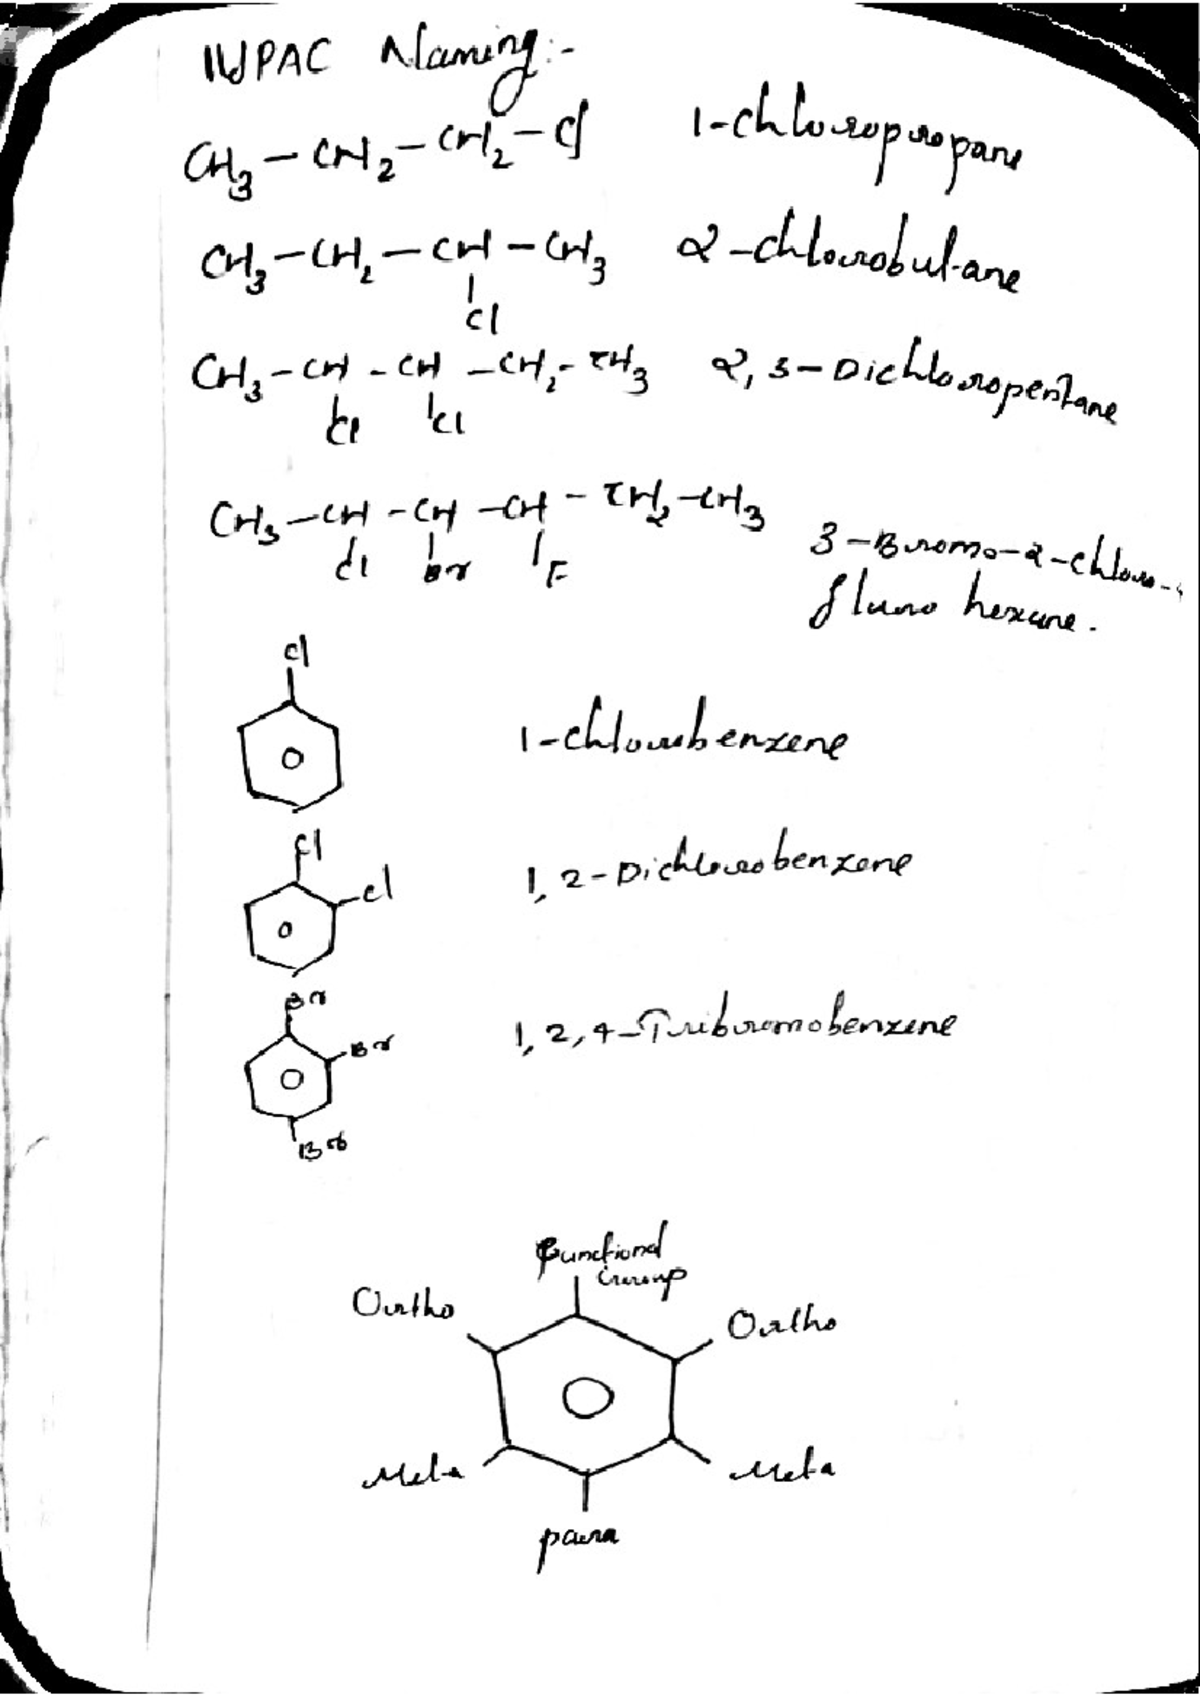 IUPAC Naming:-
CH3 - CH2 - CH2 - Cl 1-chloropropane
CH3 - CH2 - CH - CH3 2-chlorobutane
Cl
CH3 - CH - CH - CH2 - CH3 2,3-Dichloropentane
Cl Cl
CH3 - CH - CH - CH - CH2 - CH3 3-Bromo-2-chloro-
Cl Br F fluro hexane.
Cl
1-chlorobenzene
Cl
Cl
1,2-Dichlorobenzene
Br
Br
1,2,4-Tribromobenzene
Br
Functional
Group
Ortho Ortho
Meta Meta
para